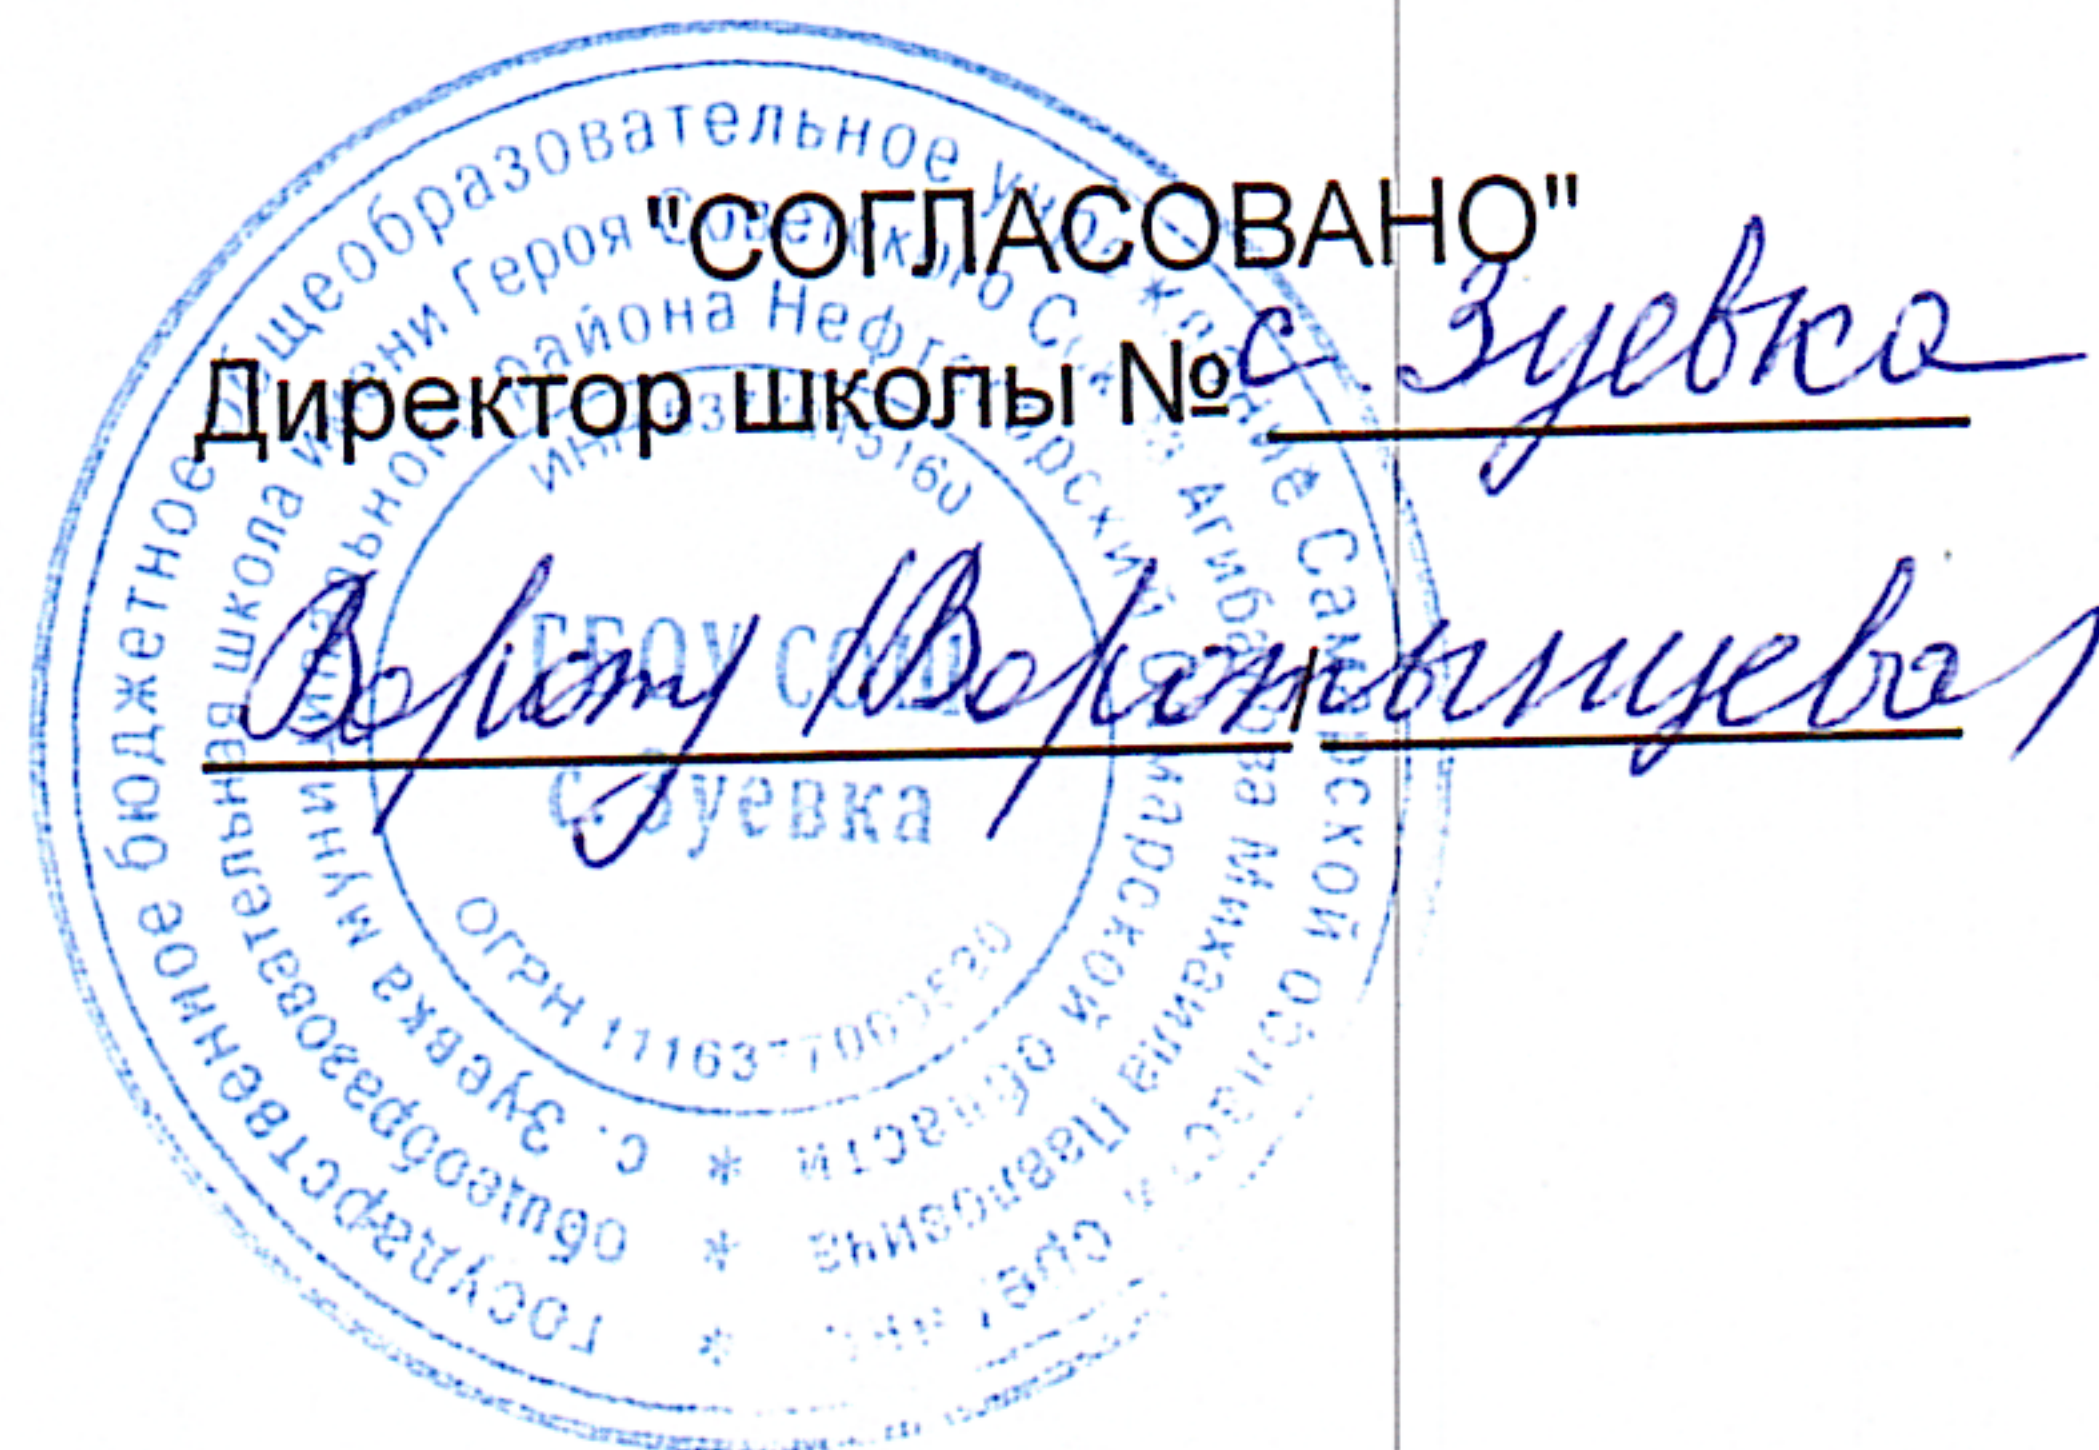 "СОГЛАСОВАНО"
Директор школы № с. Зуевка
/Воротынцева/
государственное бюджетное общеобразовательное учреждение Самарской области
общеобразовательная школа имени Героя Советского Союза Агибалова Михаила Павловича
с. Зуевка муниципального района Нефтегорский Самарской области
ИНН
ГБОУ СОШ
с. Зуевка
ОГРН